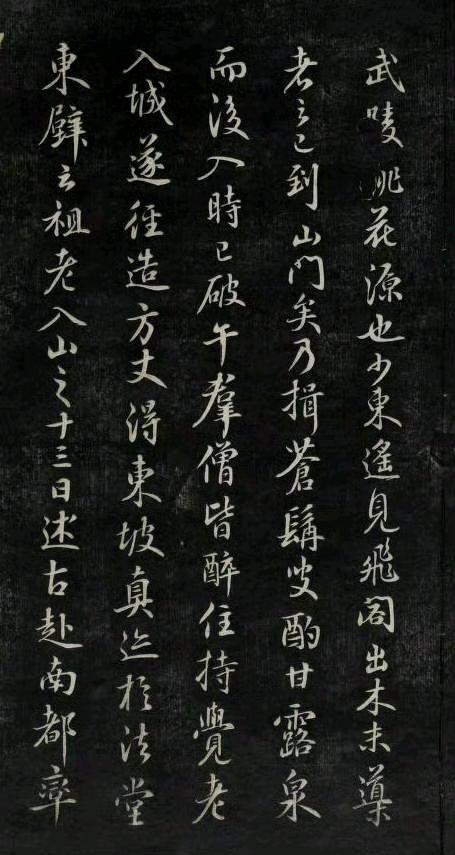 武唛桃花源也少東遙見飛閣出木末導
者言已到山門矣乃揖蒼髯叟酌甘露泉
而後入時已破午羣僧皆醉住持覺老
入城遂徑造方丈得東坡真迹於法堂
東壁云祖老入山之十三日述古赴南都率